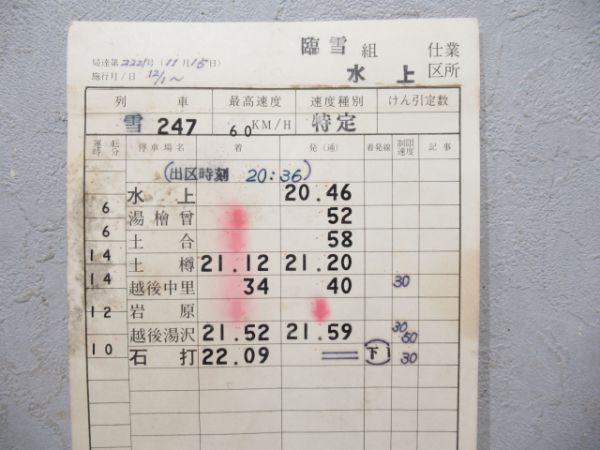 臨雪 組 仕業
局達第2221号(11月15日)
水上 区所
施行月/日 12/1~
列車 最高速度 速度種別 けん引定数
雪247 60KM/H 特定
運転時分 停車場名 着 発(通) 着発線 制限速度 記事
(出区時刻 20:36)
水上 20.46
6
湯檜曾 52
6
土合 58
14
土樽 21.12 21.20
14
越後中里 34 40 30
12
岩原
越後湯沢 21.52 21.59 30 50
10
石打 22.09 下1 30